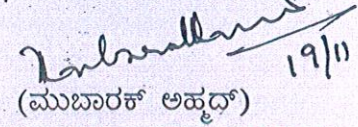 19/11
(ಮುಬಾರಕ್ ಅಹ್ಮದ್)